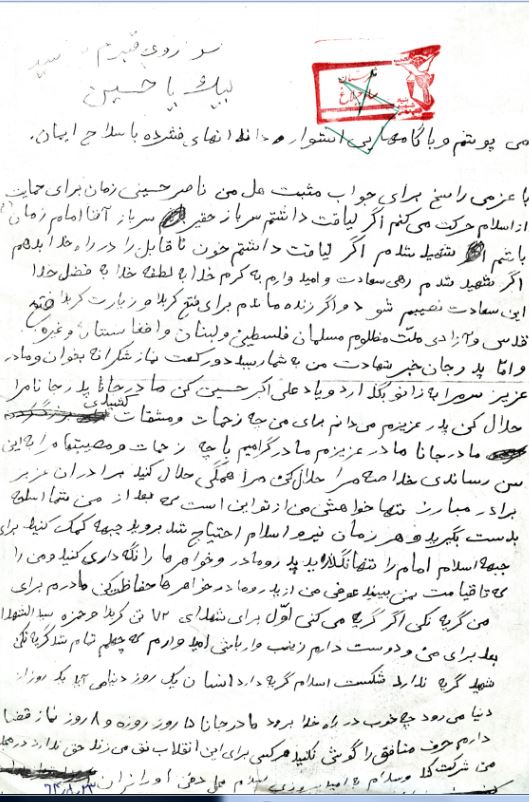 بر روی قبرم
لبیک یا حسین
می پوشم و با گامهایی استوار و دندانهای فشرده با سلاح ایمان.
با عزمی راسخ برای جواب مثبت هل من ناصر حسینی زمان برای حمایت
از اسلام حرکت می کنم اگر لیاقت داشتم سرباز حقیر سرباز آقا امام زمان
باشم شهید شدم اگر لیاقت داشتم خون ناقابل را در راه خدا بدهم
اگر شهید شدم زهی سعادت و امید وارم به کرم خدا به لطف خدا به فضل خدا
این سعادت نصیبم شود و اگر زنده ماندم برای فتح کربلا و زیارت کربلا فتح
قدس و آزادی ملت مظلوم مسلمان فلسطین و لبنان و افغانستان و غیره
و اما پدر جان خبر شهادت من به شما رسید دو رکعت نماز شکرانه بخوان و مادر
عزیز سرم را به زانو بگذارد و یاد علی اکبر حسین کن مادر جانا پدر جانا مرا
حلال کن پدر عزیزم می دانم برای من چه زحمات و مشقات کشیدی
مادر جانا مادر عزیزم مادر گرامیم با چه زحمات و مصیبتها مرا به این
سن رساندی خلاصه مرا حلال کن مرا همگی حلال کنید برادران عزیز
برادر مبارز تنها خواهشی من از تو این است که بعد از من شما اسلحه
بدست بگیرید و هر زمان نیرو اسلام احتیاج شد بروید جبهه کمک کنید برای
جبهه اسلام امام را تنها نگذارید پدر و مادر و خواهر ها را نگه داری کنید و من را
که تا قیامت نمی بینید عوض من از پدر و مادر خواهر ها حفاظت کن مادرم برای
من گریه نکن اگر گریه می کنی اول برای شهدای ۷۲ تن کربلا و حمزه سید الشهدا
بعد برای من و دوست دارم زینب وار باشی امید وارم که چهلم تمام شد گریه نکن
شهید گریه ندارد شکست اسلام گریه دارد انسان یک روز دنیا می آید یک روز از
دنیا می رود چه خوب در راه خدا برود مادر جانا ۱۵ روز روزه و ۸ روز نماز قضا
دارم حرف منافق را گوش نکنید هر کسی برای این انقلاب نق می زند حق ندارد در
من شرکت کند والسلام به امید پیروزی اسلام محل دفن